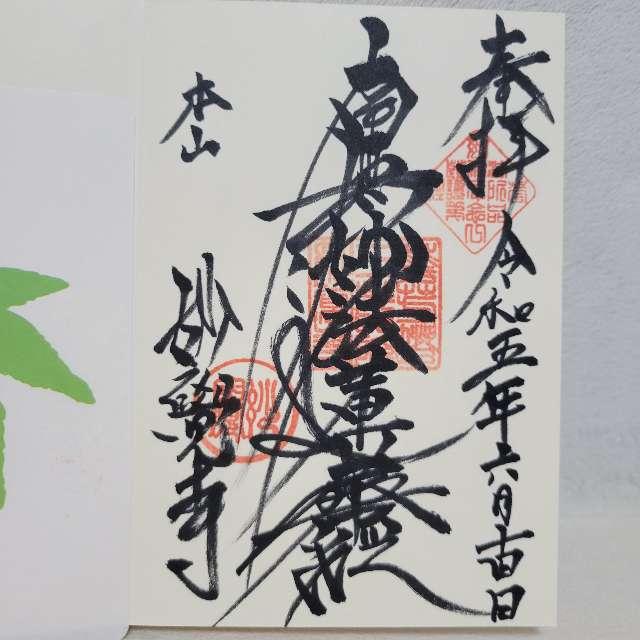 奉拝
令和五年六月吉日
南無妙法蓮華経
本山
妙覺寺